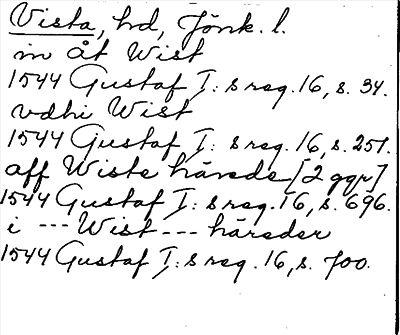 Vista, hd, Jönk. l.
in åt Wist
1544 Gustaf I: s reg. 16, s. 34.
vdhi Wist
1544 Gustaf I: s reg. 16, s. 251.
aff Wiste härede [2 ggr]
1544 Gustaf I: s reg. 16, s. 696.
i --- Wist --- häreder
1544 Gustaf I: s reg. 16, s. 700.